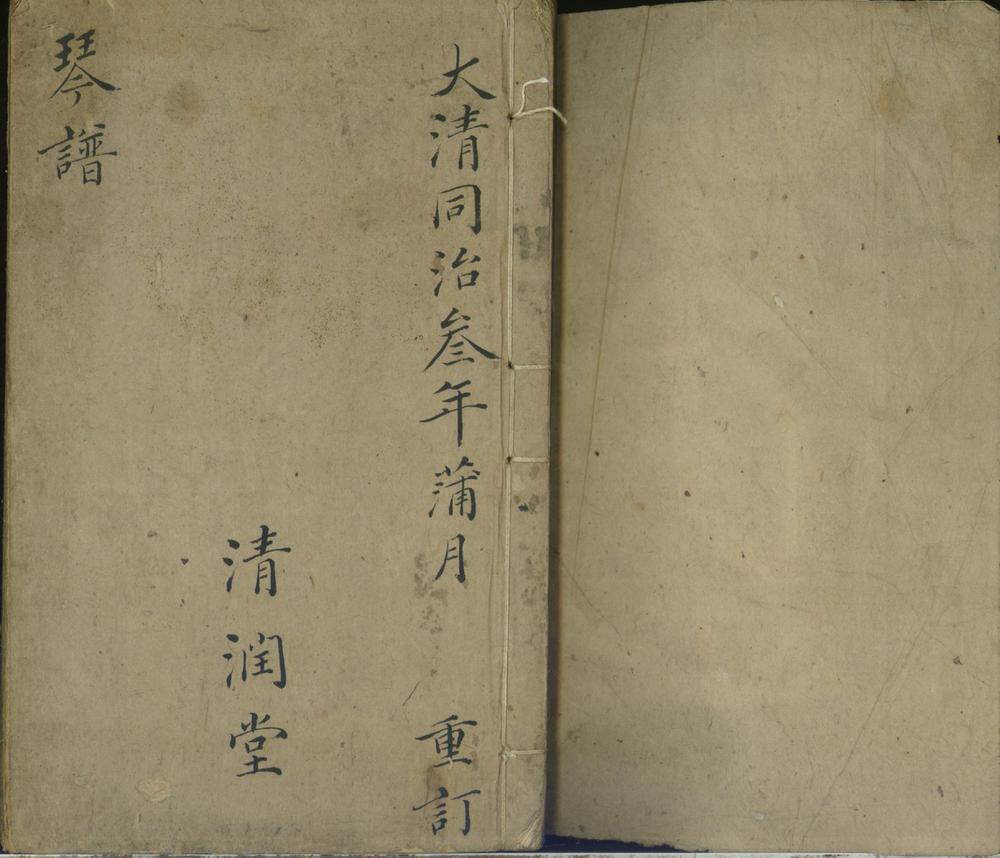 大清同治叁年蒲月 重訂
清潤堂
琴譜